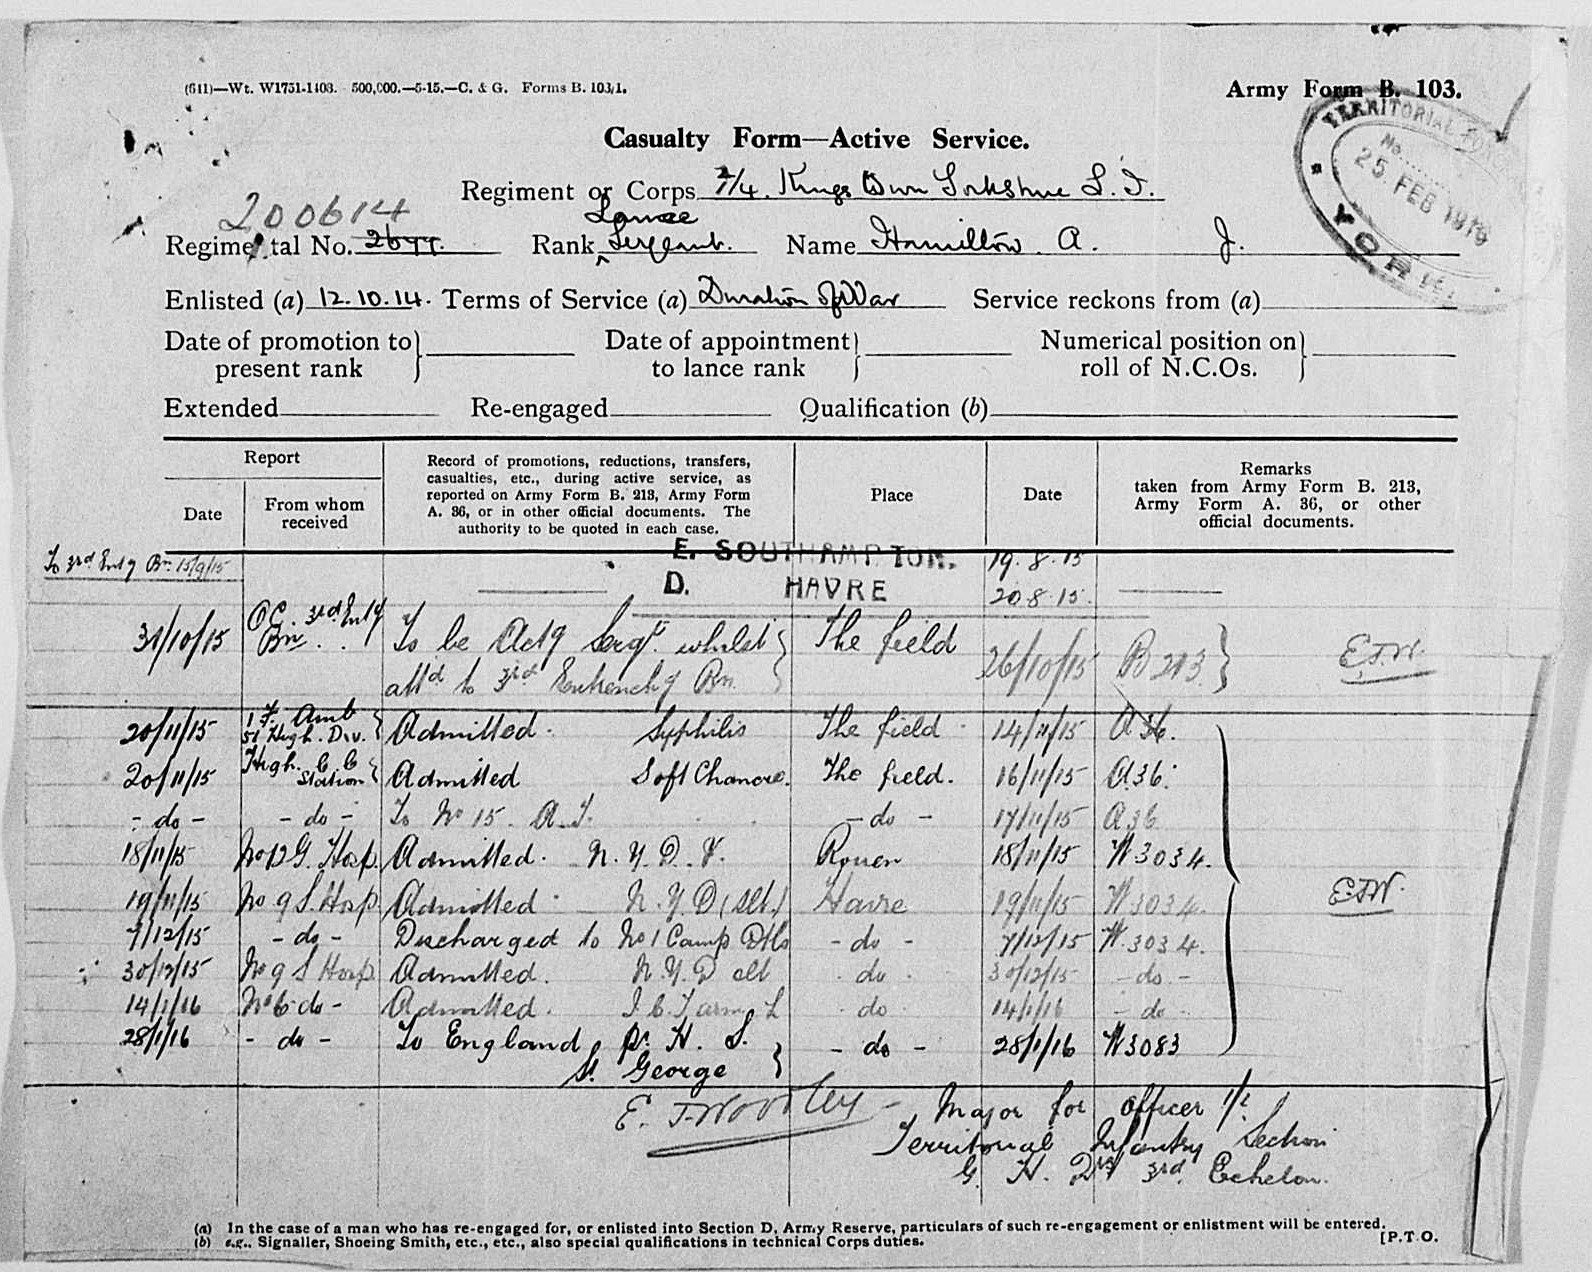 (611)—Wt. W1751-1403. 500,000.—5-15.—C. & G. Forms B. 103/1.
Army Form B. 103.
TERRITORIAL
No.
25 FEB 1919
YORK
Casualty Form—Active Service.
Regiment or Corps 2/4. Kings Own Yorkshire L. I.
200614 Lance
Regimental No. 2677. Rank Sergeant. Name Hamilton A. J.
Enlisted (a) 12.10.14. Terms of Service (a) Duration of War Service reckons from (a)
Date of promotion to present rank Date of appointment to lance rank Numerical position on roll of N.C.Os.
Extended Re-engaged Qualification (b)
Report
Date From whom received
Record of promotions, reductions, transfers, casualties, etc., during active service, as reported on Army Form B. 213, Army Form A. 36, or in other official documents. The authority to be quoted in each case.
Place
Date
Remarks taken from Army Form B. 213, Army Form A. 36, or other official documents.
To 3rd Entg Bn. 15/9/15
E. SOUTHAMPTON. 19.8.15
D. HAVRE 20.8.15.
31/10/15 OC. 3rd Entg Bn. To be Actg Sergt. whilst The field 26/10/15 B213 E.T.W.
attd to 3rd Entrenchg Bn
20/11/15 1 F. Amb 51 High. Div. Admitted. Syphilis The field 14/11/15 A36.
20/11/15 High. C C Station Admitted Soft Chancre. The field. 16/11/15 A36.
- do - - do - To No 15. A.T. - do - 17/11/15 A36
18/11/15 No 12 G. Hosp. Admitted. N. Y. D. V. Rouen 18/11/15 W3034.
19/11/15 No 9 S. Hosp. Admitted. N. Y. D (slt.) Havre 19/11/15 W3034. E.T.W.
7/12/15 - do - Discharged to No 1 Camp Dtls - do - 7/12/15 W.3034.
30/12/15 No 9 S Hosp Admitted. N. Y. D slt do 30/12/15 - do -
14/1/16 No 6 do - Admitted. I. C. T arm L do 14/1/16 - do -
28/1/16 - do - To England pr. H. S. - do - 28/1/16 W3083
St. George
E. T. Wortley Major for Officer i/c
Territorial Infantry Section
G. H. Qrs 3rd Echelon.
(a) In the case of a man who has re-engaged for, or enlisted into Section D, Army Reserve, particulars of such re-engagement or enlistment will be entered.
(b) e.g., Signaller, Shoeing Smith, etc., etc., also special qualifications in technical Corps duties.
[P.T.O.